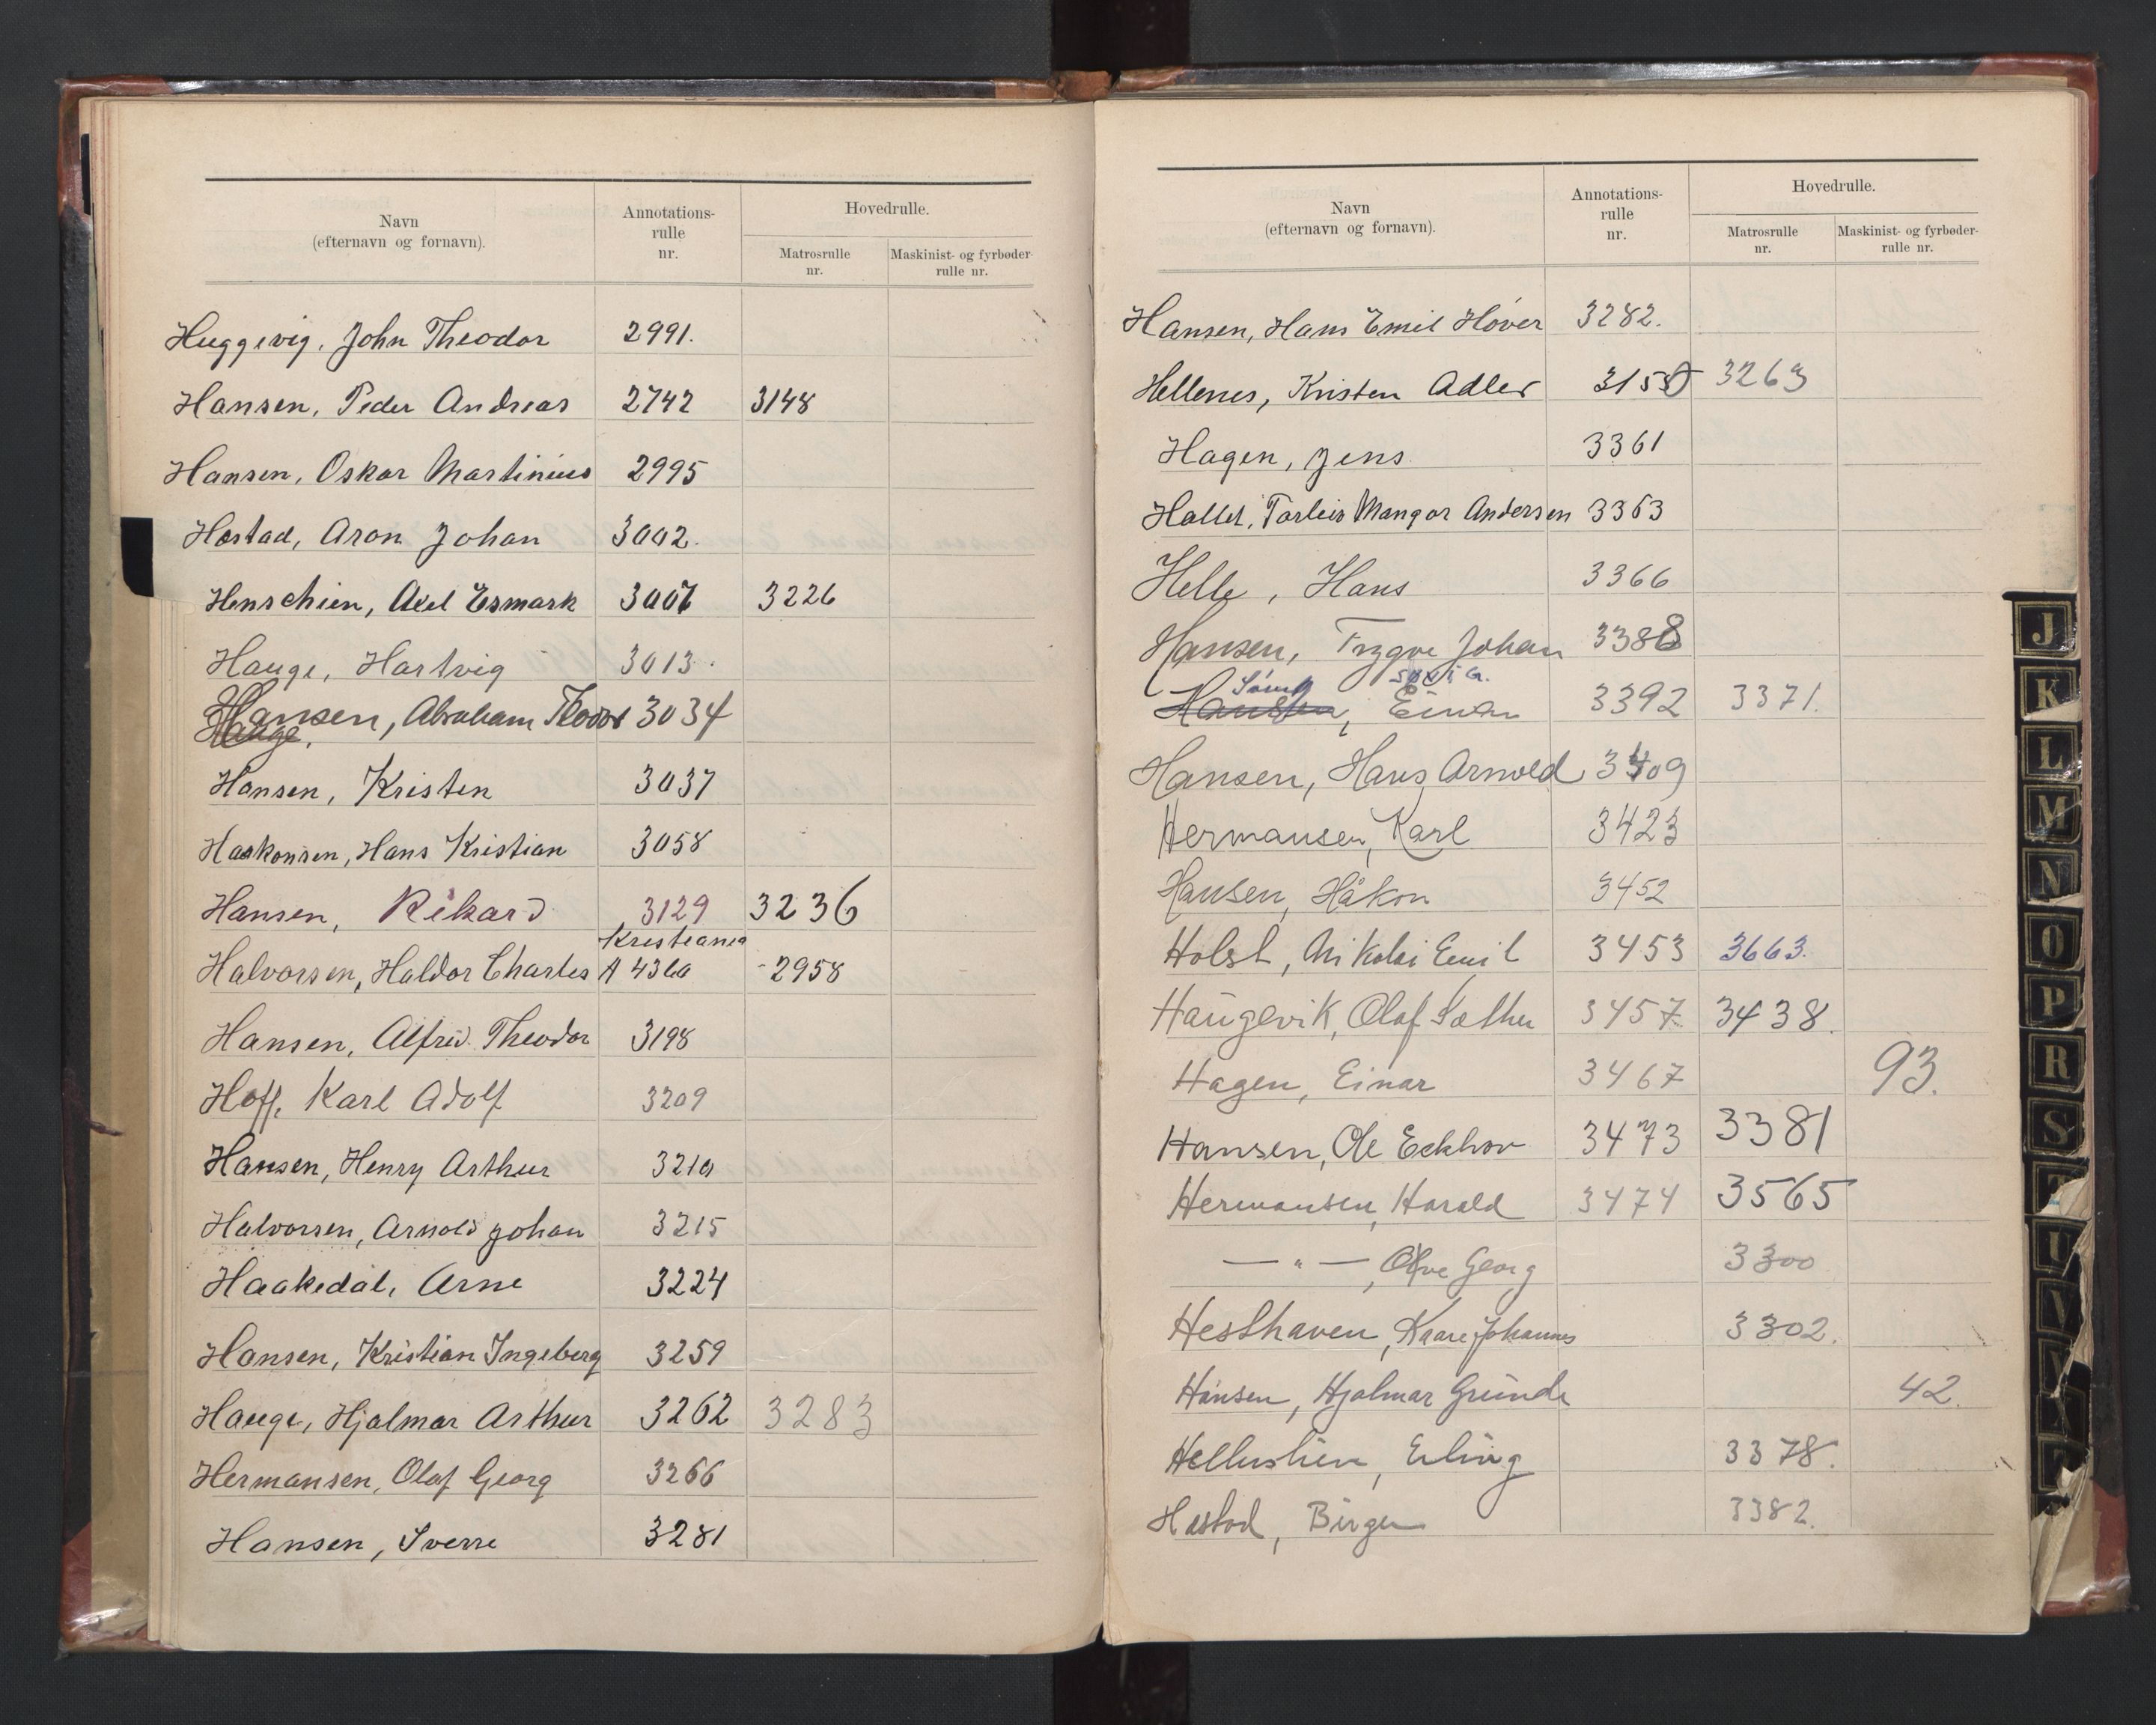 Navn
(efternavn og fornavn).
Annotations-
rulle
nr.
Hovedrulle.
Matrosrulle
nr.
Maskinist- og fyrbøder-
rulle nr.
Huggevig, John Theodor 2991.
Hansen, Peder Andreas 2742 3148
Hansen, Oskar Martinius 2995
Hæstad, Aron Johan 3002.
Henschien, Axel Esmark 3007 3226
Hauge, Hartvig 3013.
Hansen, Abraham Theodor 3034
Hauge,
Hansen, Kristen 3037
Haakonsen, Hans Kristian 3058
Hansen, Rikard 3129 3236
Kristiania
Halvorsen, Haldor Charles A 4360 -2958
Hansen, Alfred Theodor 3198
Hoff, Karl Adolf 3209
Hansen, Henry Arthur 3210
Halvorsen, Arnold Johan 3215
Haakedal, Arne 3224
Hansen, Kristian Ingeberg 3259
Hauge, Hjalmar Arthur 3262 3283
Hermansen, Olaf Georg 3266
Hansen, Sverre 3281
Navn
(efternavn og fornavn).
Annotations-
rulle
nr.
Hovedrulle.
Matrosrulle
nr.
Maskinist- og fyrbøder-
rulle nr.
Hansen, Hans Emil Höver 3282.
Hellenes, Kristen Adler 3150 3263
Hagen, Jens 3361
Torleiv Mangor Andersen 3363
Helle, Hans 3366
Hansen, Trygve Johan 3388
Hansen, Einar 3392 3371.
Hansen, Hans Arnold 3409
Hermansen, Karl 3423
Hansen, Håkon 3452
Holst, Nikolai Emil 3453 3663.
Haugevik, Olaf Sæther 3457 3438.
Hagen, Einar 3467 93.
Hansen, Ole Eckhov 3473 3381
Hermansen, Harald 3474 3565
— " —, Georg 3300
Hesthaven, Kaare Johannes 3302.
Hansen, Hjalmar Grunde 42.
Erling 3378.
Hæstad, Birger 3382.
J
K
L
M
N
O
P
R
S
T
U
V